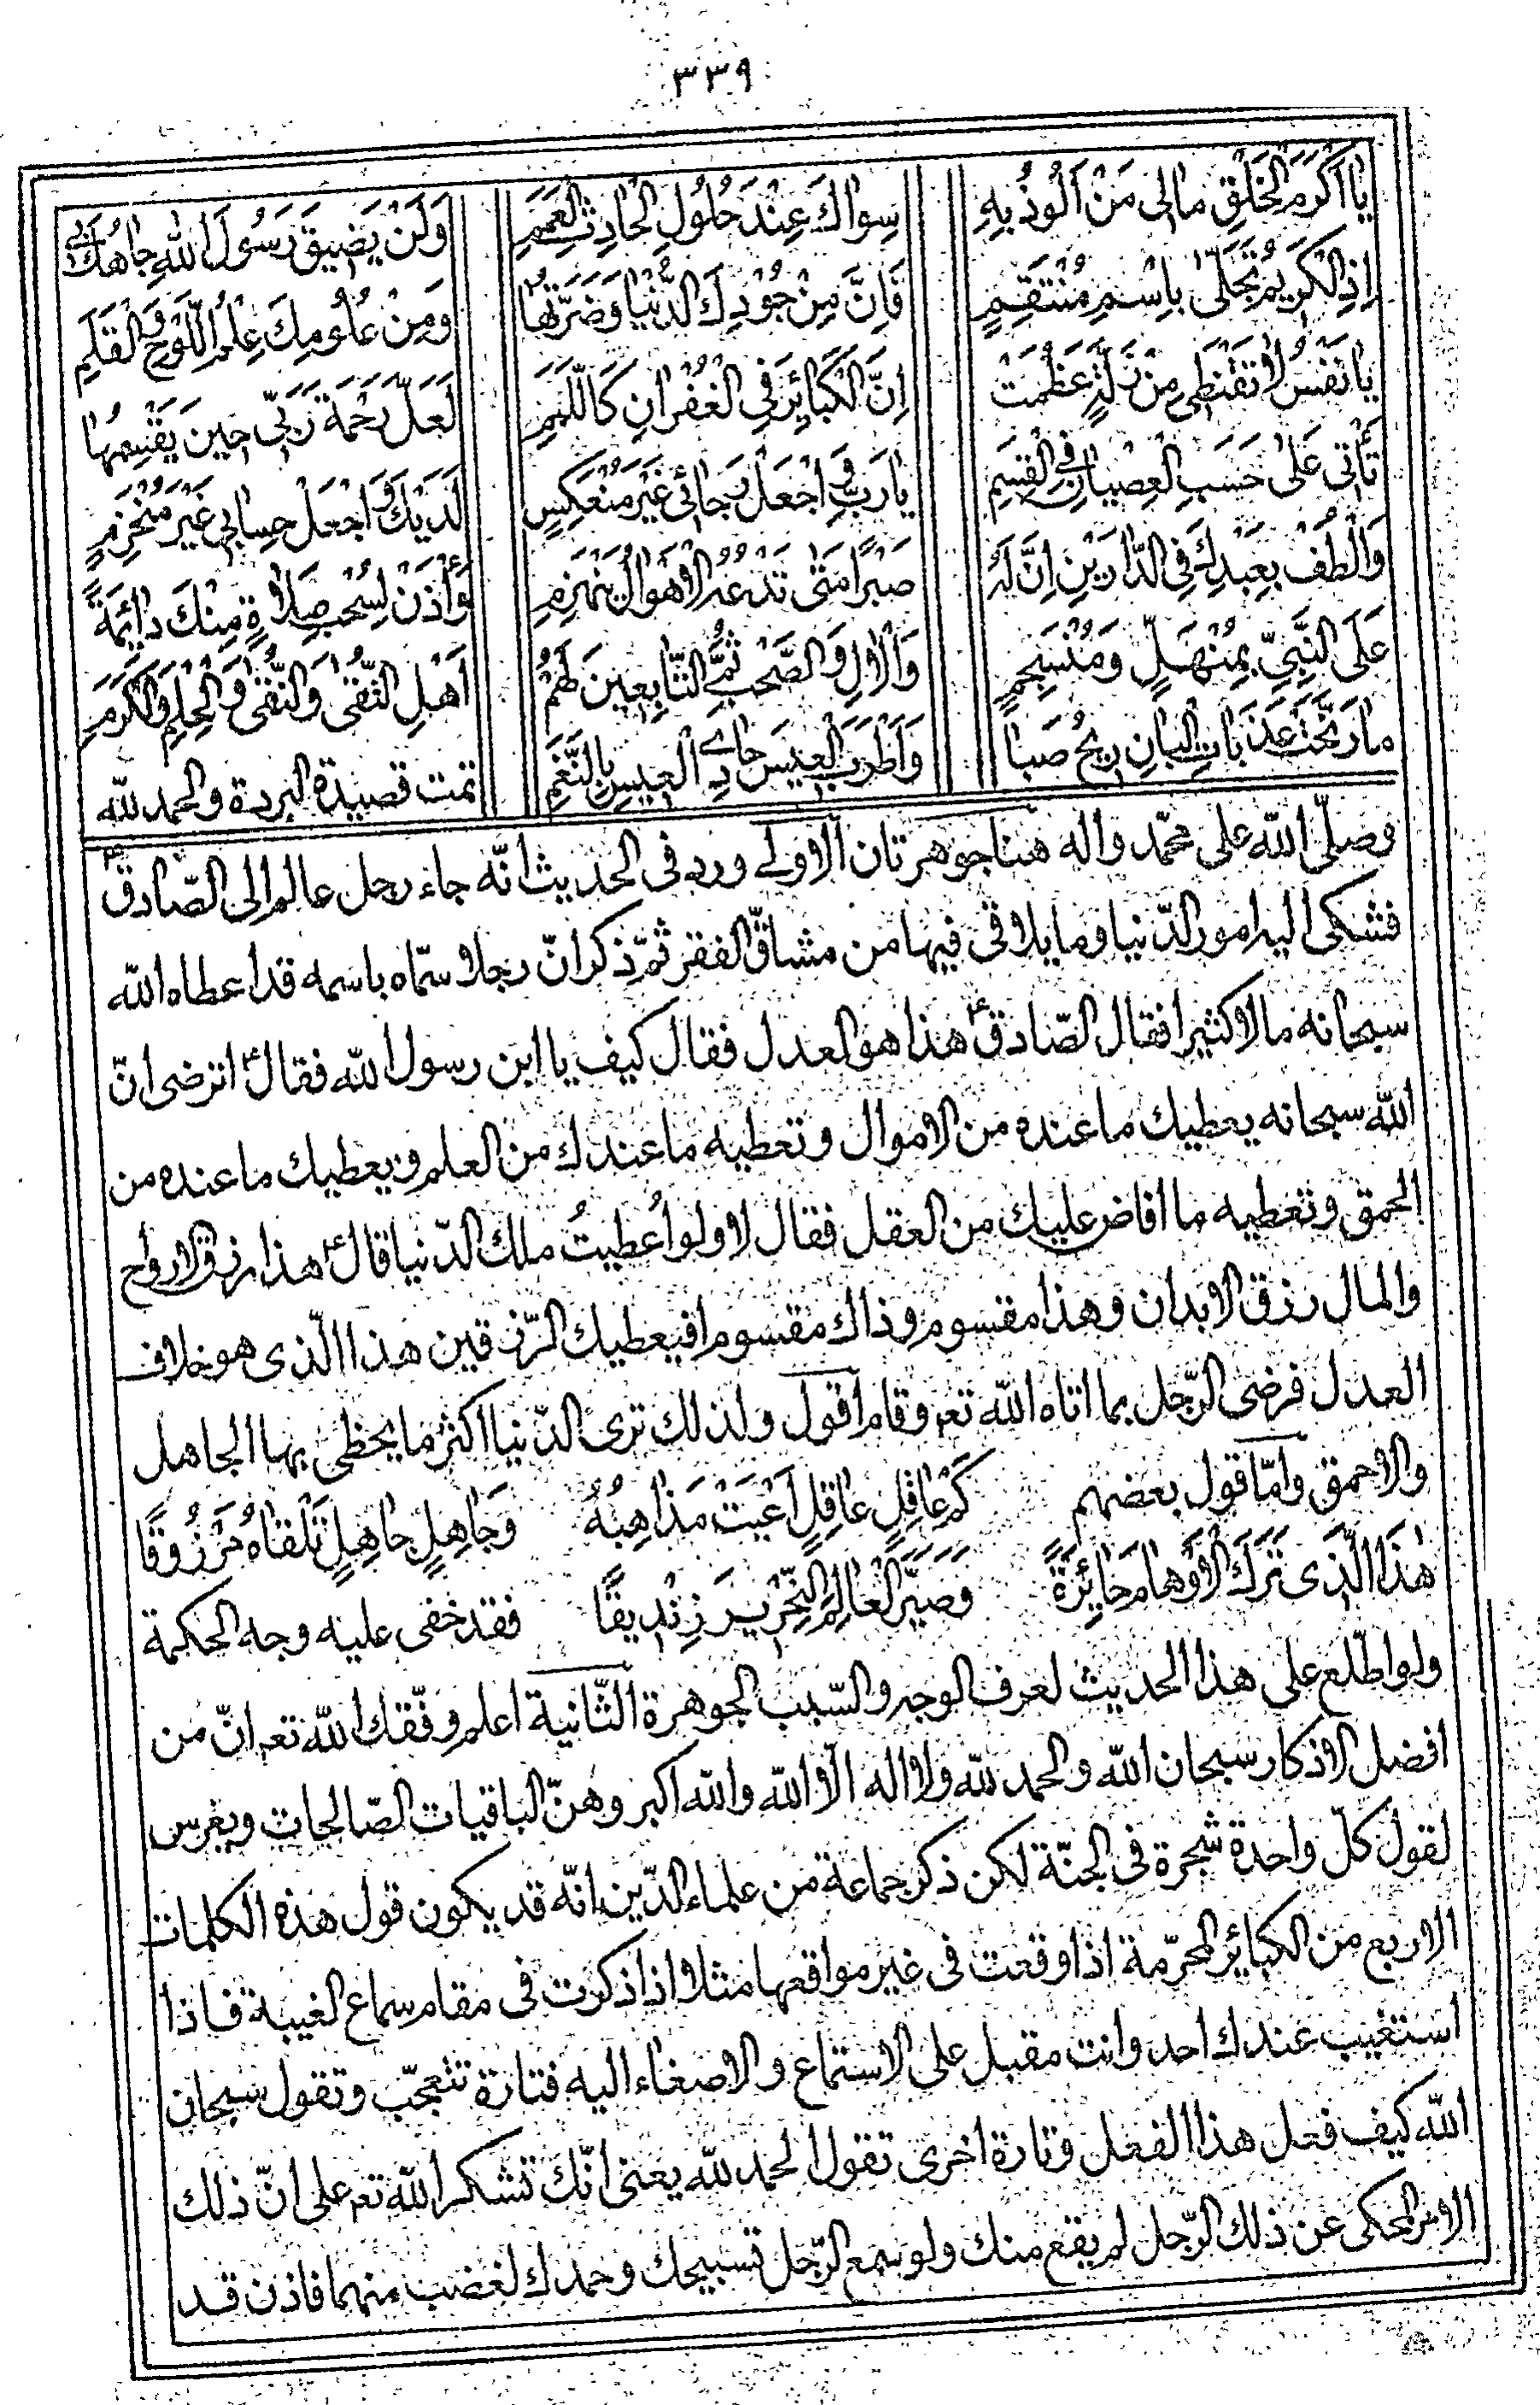 ٣٣٩
يا اَكْرَمَ الْخَلْقِ مالى مَنْ اَلُوذُ بِهِ سِواكَ عِنْدَ حُلُولِ الْحادِثِ الْعَمِمِ وَلَنْ يَضيقَ رَسُولَ اللهِ جاهُكَ بى
اِذِ الْكَريمُ تَجَلّى بِاسْمِ مُنْتَقِمٍ فَاِنَّ مِنْ جُودِكَ الدُّنْيا وَضَرَّتَها وَمِنْ عُلُومِكَ عِلْمُ اللَّوْحِ وَالْقَلَمِ
يا نَفْسُ لا تَقْنَطى مِنْ زَلَّةٍ عَظُمَتْ اِنَّ الْكَبائِرَ فِى الْغُفْرانِ كَاللَّمَمِ لَعَلَّ رَحْمَةَ رَبّى حينَ يَقْسِمُها
تَأْتى عَلى حَسَبِ الْعِصْيانِ فِى الْقِسَمِ يا رَبِّ وَاجْعَلْ رَجائى غَيْرَ مُنْعَكِسٍ لَدَيْكَ وَاجْعَلْ حِسابى غَيْرَ مُنْخَرِمٍ
وَالْطُفْ بِعَبْدِكَ فِى الدّارَيْنِ اِنَّ لَهُ صَبْرًا مَتى تَدْعُهُ الْاَهْوالُ يَنْهَزِمِ وَأْذَنْ لِسُحْبِ صَلاةٍ مِنْكَ دائِمَةً
عَلَى النَّبِىِّ بِمُنْهَلٍّ وَمُنْسَجِمٍ وَالْاٰلِ وَالصَّحْبِ ثُمَّ التّابِعينَ لَهُمْ اَهْلِ التُّقى وَالنُّقى وَالْحِلْمِ وَالْكَرَمِ
ما رَنَّحَتْ عَذَباتِ الْبانِ ريحُ صَبا وَاَطْرَبَ الْعيسَ حادِى الْعيسِ بِالنَّغَمِ تمت قصيدة البردة والحمد لله
وصلّى الله على محمّد واله هنا جوهرتان الاولى ورد فى الحديث انّه جاء رجل عالم الى الصّادق ع
فشكى اليه امور الدّنيا وما يلاقى فيها من مشاقّ الفقر ثمّ ذكر انّ رجلا سمّاه باسمه قد اعطاه الله
سبحانه مالا كثيرا فقال الصّادق ع هذا هو العدل فقال كيف يا ابن رسول الله فقال ع اترضى انّ
الله سبحانه يعطيك ما عنده من الاموال وتعطيه ما عندك من العلم ويعطيك ما عنده من
الحمق وتعطيه ما افاض عليك من العقل فقال لا ولو اُعطيتُ ملك الدّنيا قال ع هذا رزق الارواح
والمال رزق الابدان وهذا مقسوم وذاك مقسوم افيعطيك الرّزقين هذا الّذى هو خلاف
العدل فرضى الرّجل بما اتاه الله تعه وقام اقول ولذلك ترى الدّنيا اكثر ما يحظى بها الجاهل
والاحمق وامّا قول بعضهم كَمْ عاقِلٍ عاقِلٍ اَعْيَتْ مَذاهِبُهُ وَجاهِلٍ جاهِلٍ تَلْقاهُ مَرْزُوقًا
هٰذَا الَّذى تَرَكَ الْاَوْهامَ حائِرَةً وَصَيَّرَ الْعالِمَ النِّحْريرَ زِنْديقًا فقد خفى عليه وجه الحكمة
ولو اطّلع على هذا الحديث لعرف الوجه والسّبب الجوهرة الثّانية اعلم وفّقك الله تعه انّ من
افضل الاذكار سبحان الله والحمد لله ولا اله الّا الله والله اكبر وهنّ الباقيات الصّالحات ويغرس
لقول كلّ واحدة شجرة فى الجنّة لكن ذكر جماعة من علماء الدّين انّه قد يكون قول هذه الكلمات
الاربع من الكبائر المحرّمة اذا وقعت فى غير مواقعها مثلا اذا ذكرت فى مقام سماع الغيبة فاذا
استغيب عندك احد وانت مقبل على الاستماع والاصغاء اليه فتارة تتعجّب وتقول سبحان
الله كيف فعل هذا الفعل وتارة اخرى تقول الحمد لله يعنى انّك تشكر الله تعه على انّ ذلك
الامر المحكى عن ذلك الرّجل لم يقع منك ولو سمع الرّجل تسبيحك وحمدك لغضب منهما فاذن قد